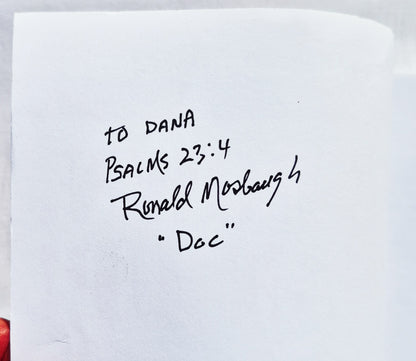 to DANA
PSALMS 23:4
Ronald Mosbaugh
"Doc"